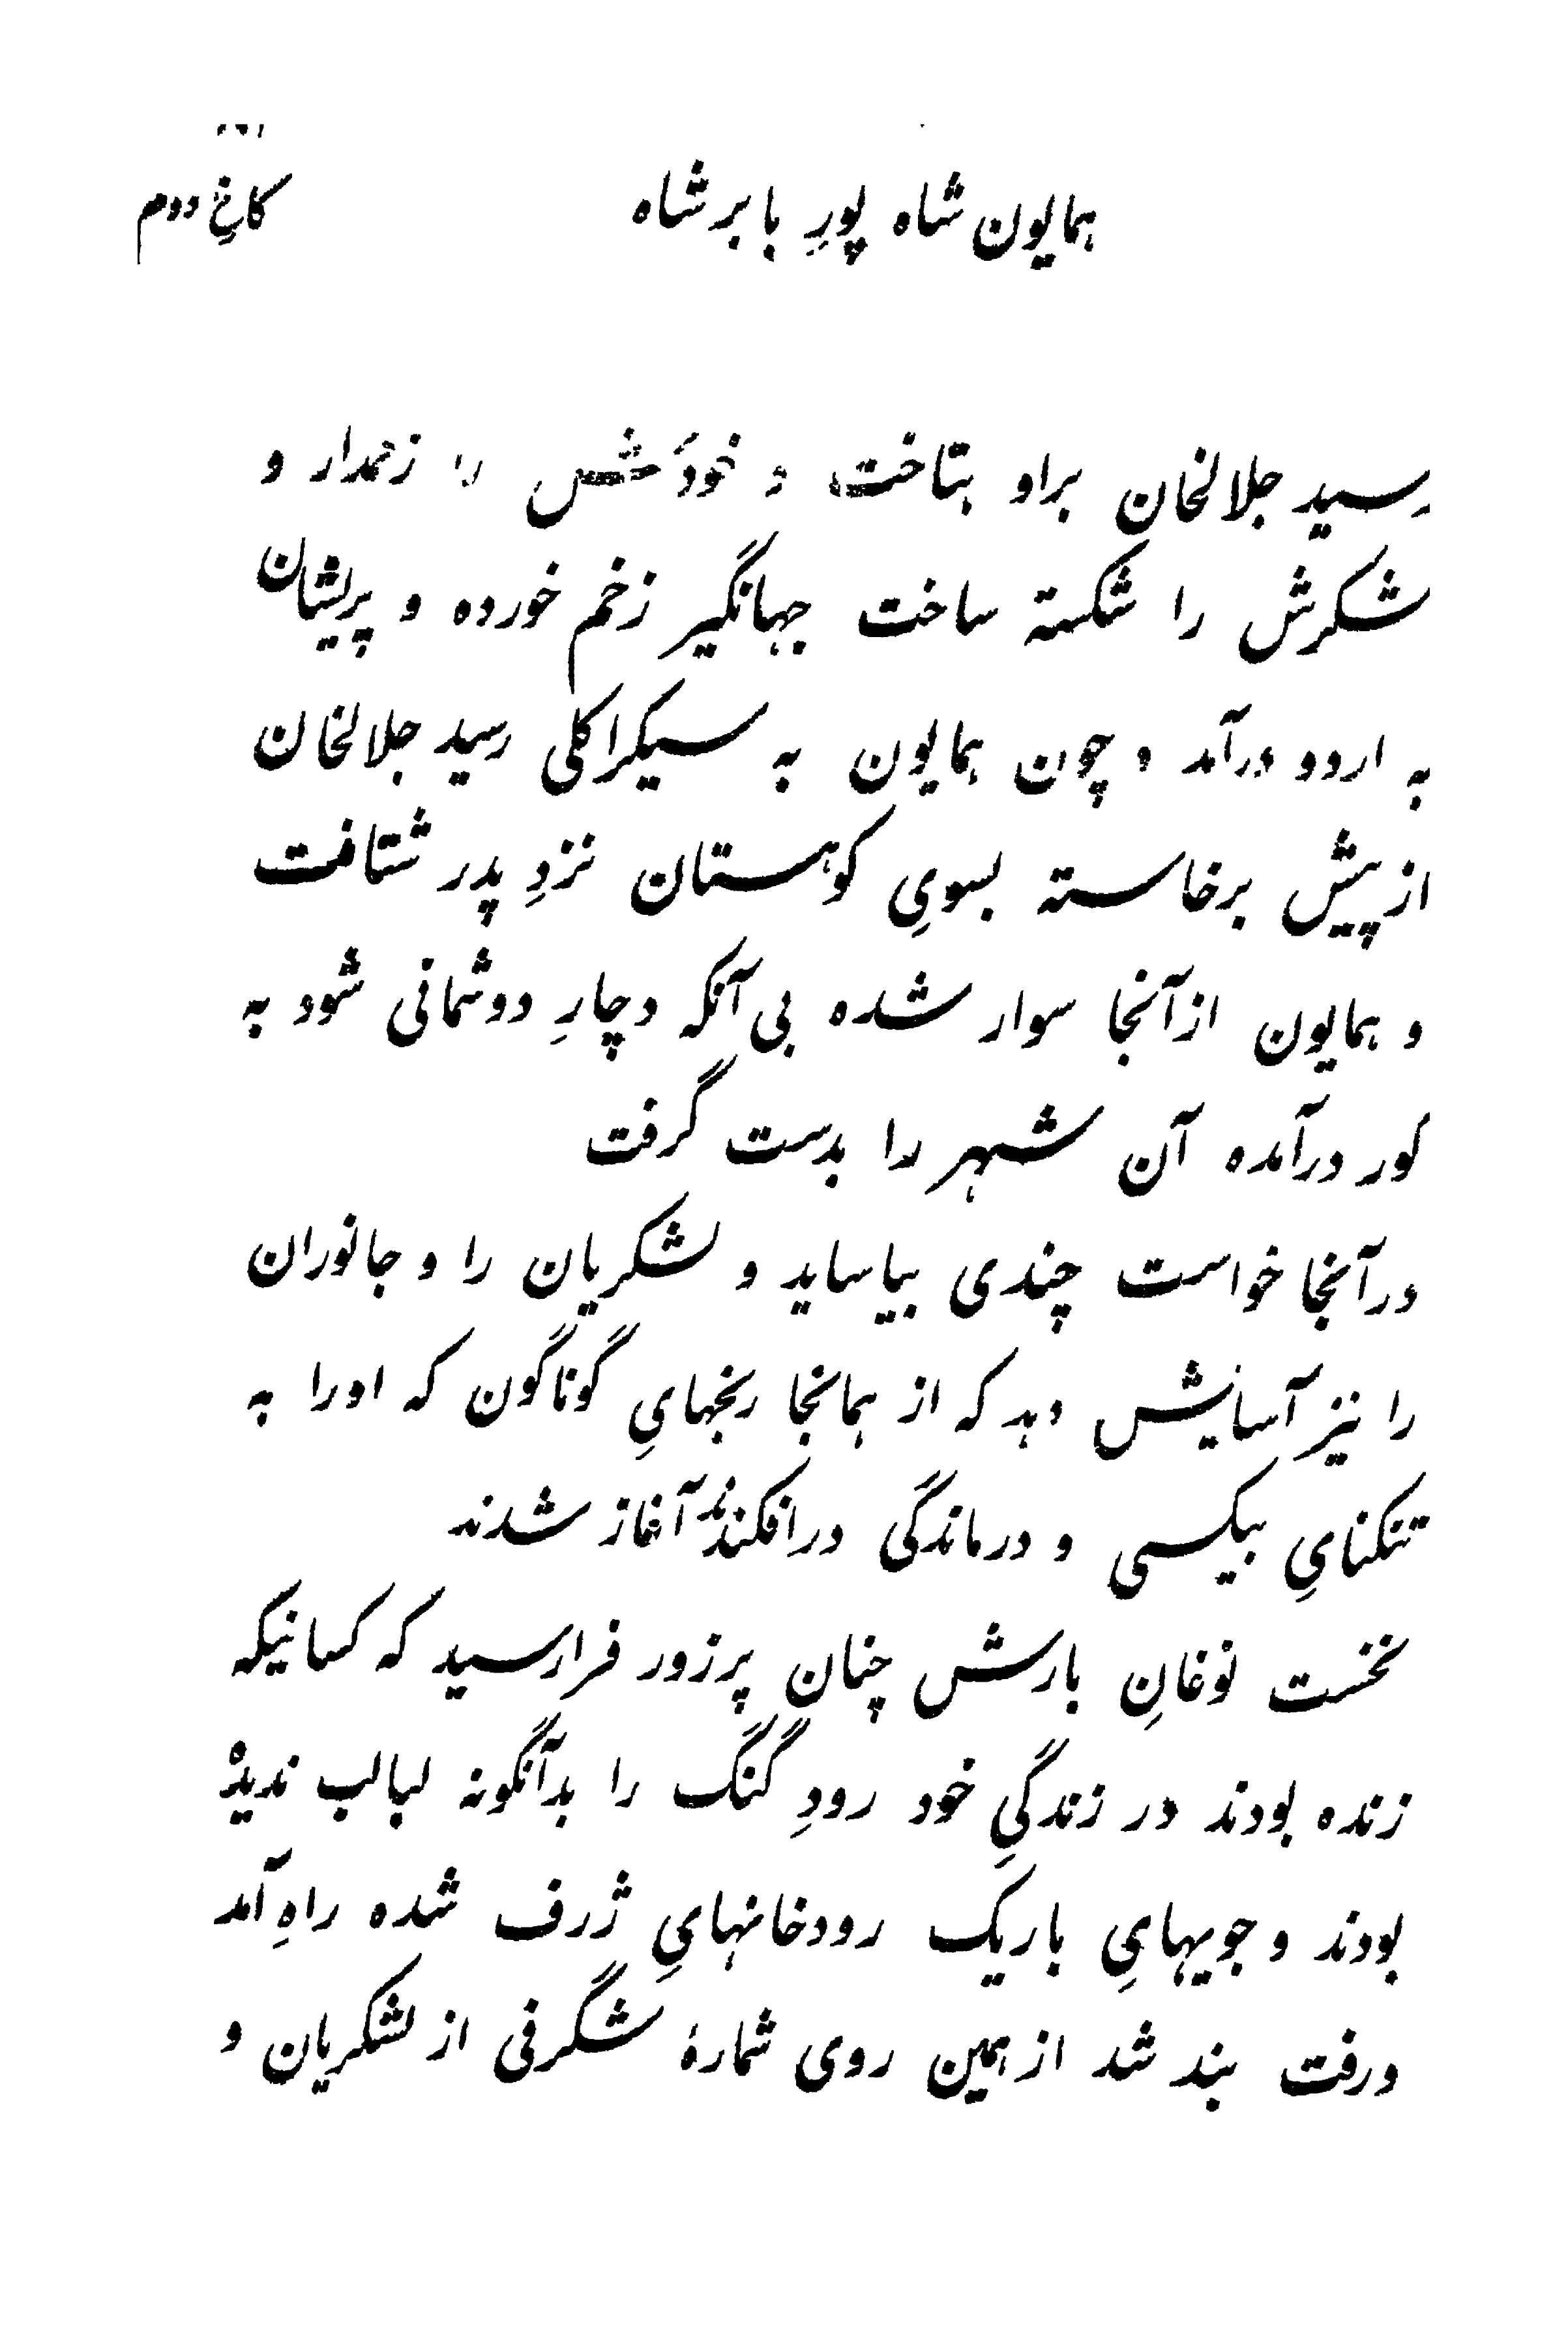 همایون شاه پورِ بابر شاه
کاخِ دوم
رسید جلالخان براو بتاخت و خودَش را زخمدار و
لشکرش را شکسته ساخت جهانگیر زخم خورده و پریشان
به اردو درآمد و چون همایون به سیکراکلی رسید جلالخان
از پیش برخاسته بسویِ کوهستان نزدِ پدر شتافت
و همایون از آنجا سوار شده بی آنکه دچارِ دوشمانی شود به
گور درآمده آن شهر را بدست گرفت
در آنجا خواست چندی بیاساید و لشکریان را و جانوران
را نیز آسایش دهد که از همانجا رنجهایِ گوناگون که اورا به
تنکنایِ بیکسی و درماندگی درافکندند آغاز شدند
نخست نوغانِ بارش چنان پرزور فرارسید که کسانیکه
زنده بودند در زندگیِ خود رودِ گنگ را بدآنگونه لبالب ندیده
بودند و جویهایِ باریک رودخانهایِ ژرف شده راهِ آمد
ورفت بند شد از همین روی شمارهٔ شگرفی از لشکریان و